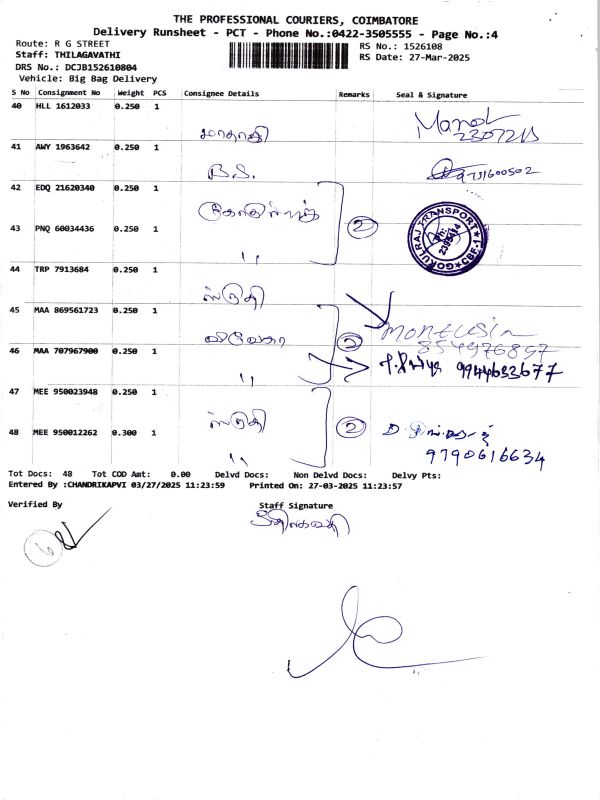 THE PROFESSIONAL COURIERS, COIMBATORE
Delivery Runsheet - PCT - Phone No.:0422-3505555 - Page No.:4
Route: R G STREET
Staff: THILAGAVATHI
DRS No.: DCJB152610804
Vehicle: Big Bag Delivery
RS No.: 1526108
RS Date: 27-Mar-2025
S No Consignment No Weight PCS Consignee Details Remarks Seal & Signature
40 HLL 1612033 0.250 1
41 AWY 1963642 0.250 1
B.S. 9731600502
42 EDQ 21620340 0.250 1
2
43 PNQ 60034436 0.250 1
GOKULRAJ TRANSPORT CBE-1
"
44 TRP 7913684 0.250 1
ஸ்ருதி
45 MAA 869561723 0.250 1
2
46 MAA 707967900 0.250 1
" 9944633677
47 MEE 950023948 0.250 1
ஸ்ருதி 2
48 MEE 950012262 0.300 1
" 9790616634
Tot Docs: 48 Tot COD Amt: 0.00 Delvd Docs: Non Delvd Docs: Delvy Pts:
Entered By :CHANDRIKAPVI 03/27/2025 11:23:59 Printed On: 27-03-2025 11:23:57
Verified By Staff Signature